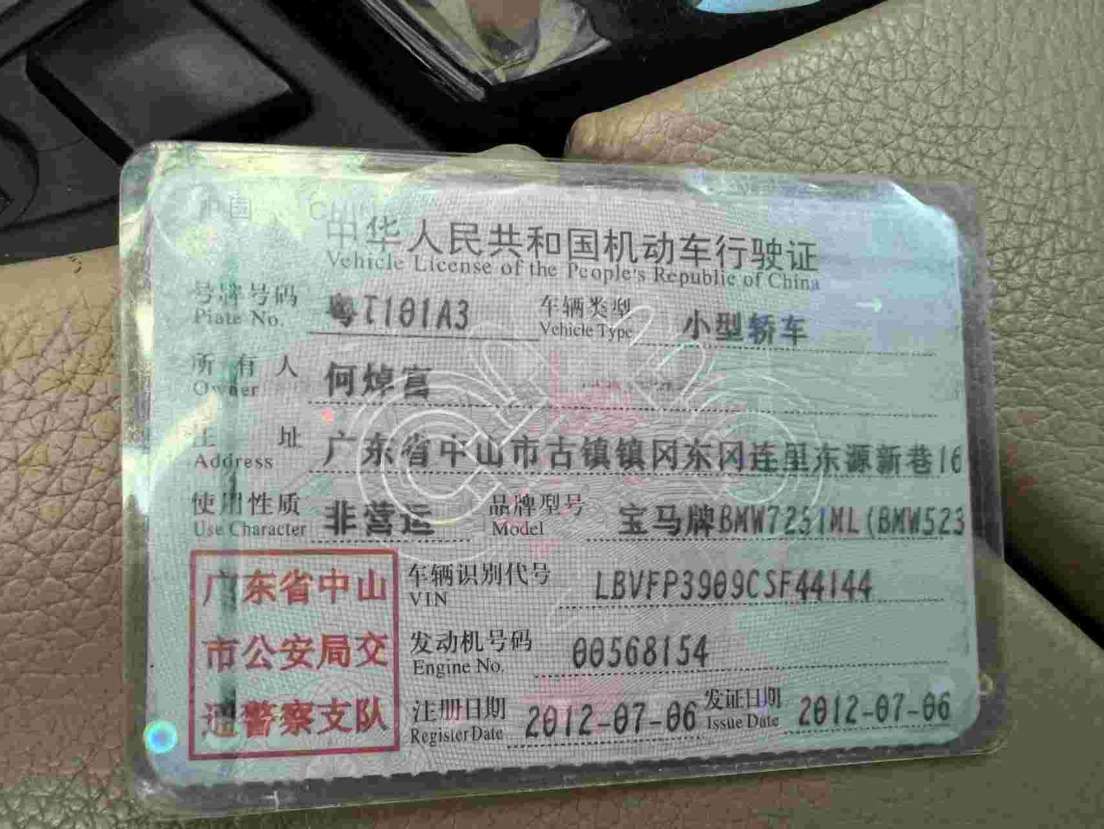 中国 CHINA
中华人民共和国机动车行驶证
Vehicle License of the People's Republic of China
号牌号码 粤T101A3 车辆类型 小型轿车
Plate No. Vehicle Type
所有人 何焯富
Owner
住址 广东省中山市古镇镇冈东冈连里东源新巷16
Address
使用性质 非营运 品牌型号 宝马牌BMW7251ML(BMW523
Use Character Model
广东省中山 车辆识别代号 LBVFP3909CSF44144
VIN
市公安局交 发动机号码 00568154
Engine No.
通警察支队 注册日期 2012-07-06 发证日期 2012-07-06
Register Date Issue Date